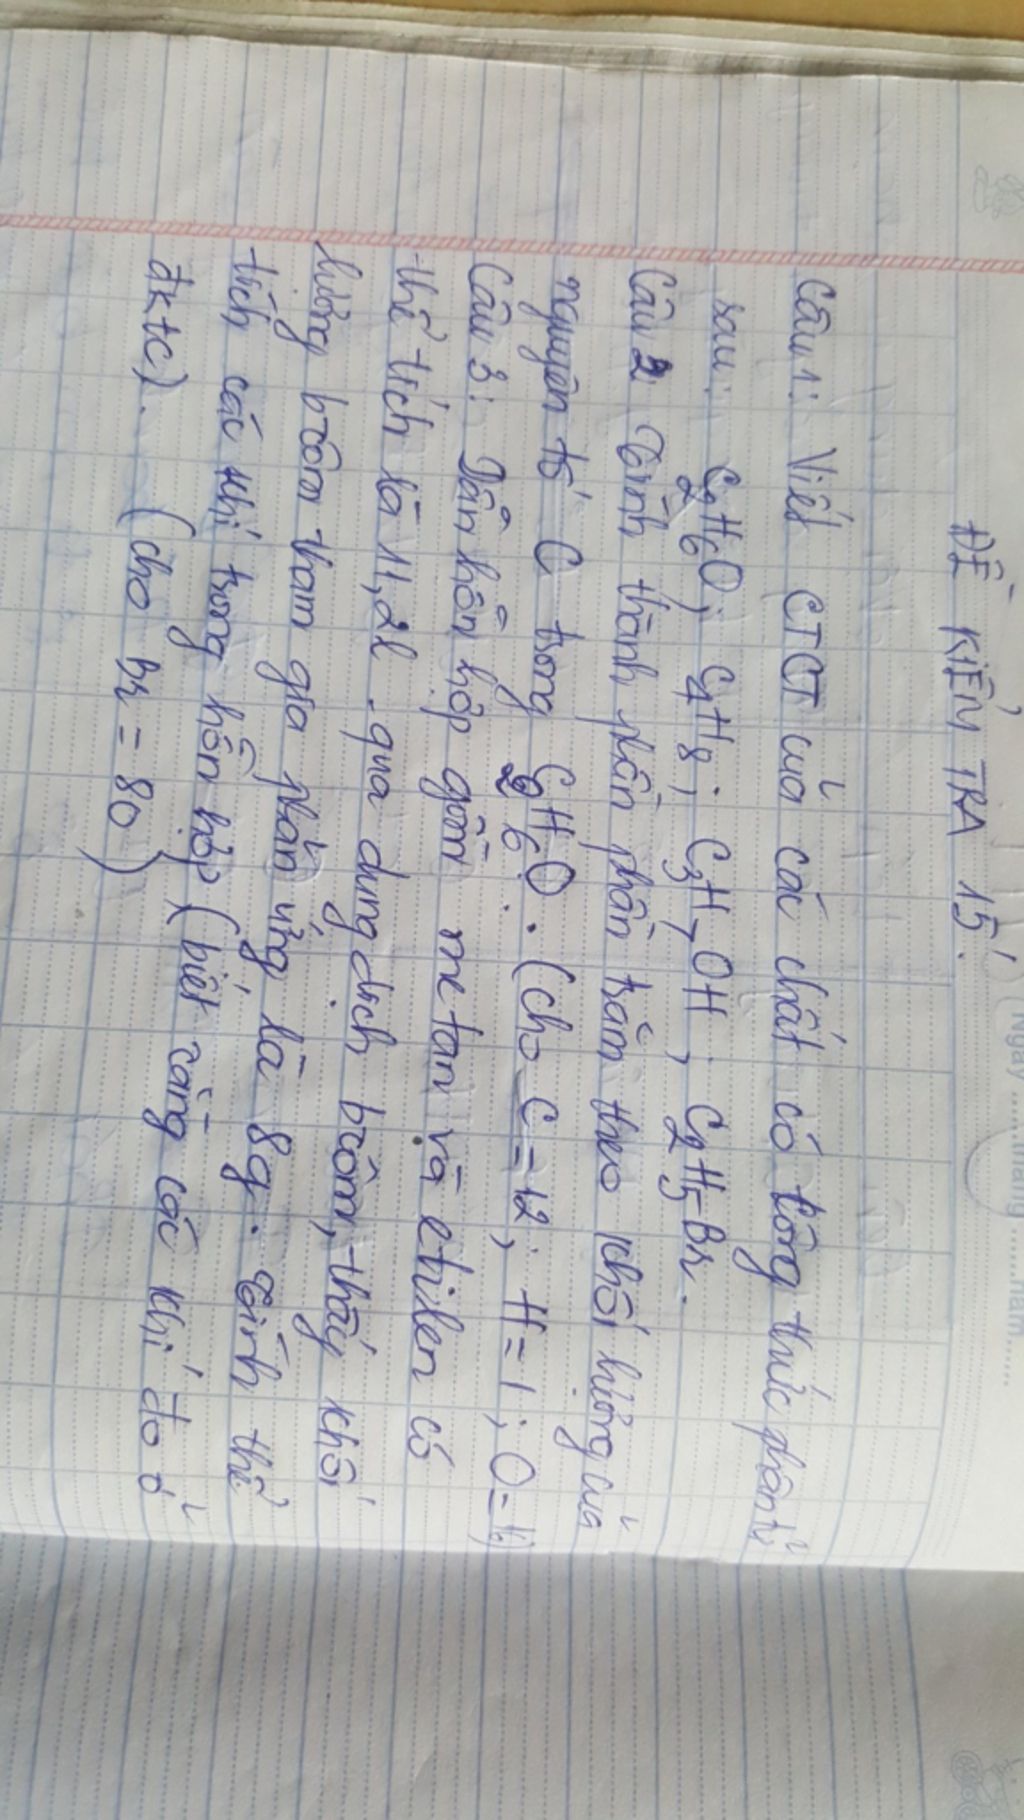 ĐỀ KIỂM TRA 15'.
Câu 1: Viết CTCT của các chất có công thức phân tử
sau: C2H6O; C4H8; C3H7OH; C2H5Br.
Câu 2: Tính thành phần phần trăm theo khối lượng của
nguyên tố C trong C2H6O. (Cho C=12; H=1; O=16)
Câu 3: Dẫn hỗn hợp gồm metan và etilen có
thể tích là 11,2l qua dung dịch brôm, thấy khối
lượng brôm tham gia phản ứng là 8g. Tính thể
tích các khí trong hỗn hợp (biết rằng các khí đo ở
đktc). (cho Br = 80)
Ngày ...... tháng ...... năm ......